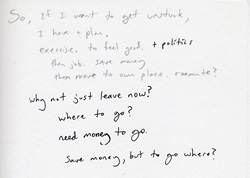 So, If I want to get unstuck,
I have a plan.
exercise. to feel good. + politics
then job. save money
then move to own place. roomate?
why not just leave now?
where to go?
need money to go.
save money, but to go where?